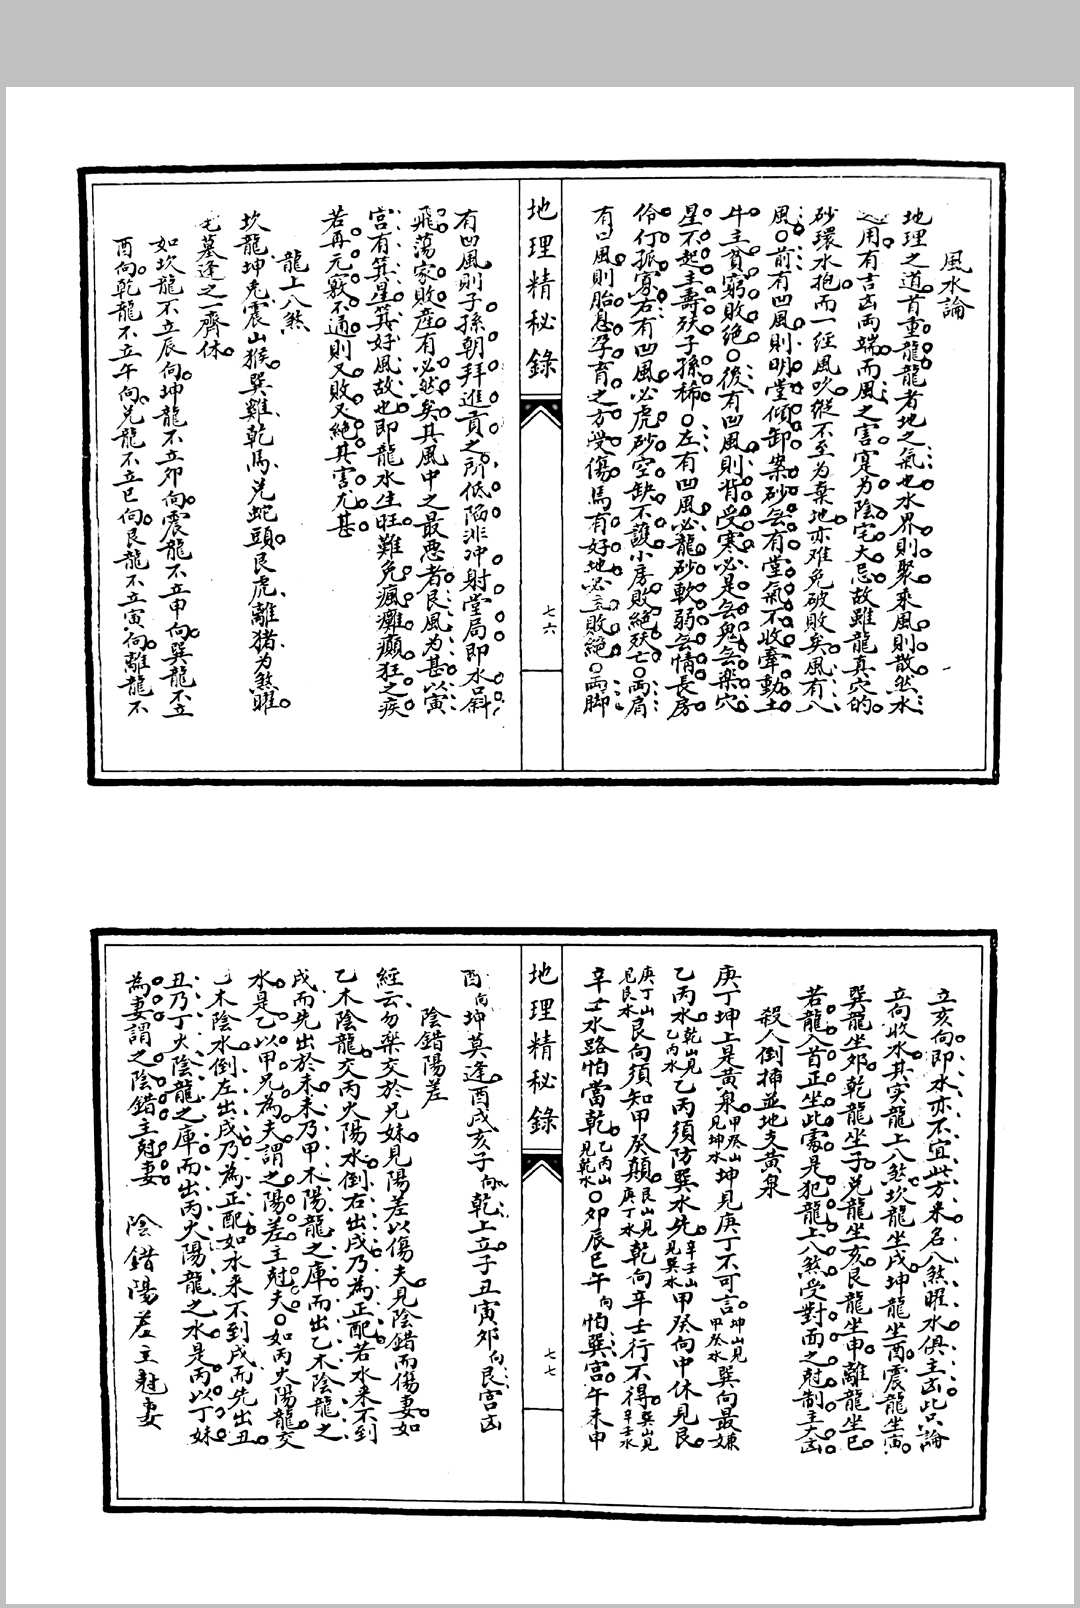 風水論
地理之道首重龍龍者地之氣也水界則聚乘風則散然水
用有吉凶兩端而風之害寔为陰宅大忌故雖龍真穴的
砂環水抱而一经風吹縱不至为棄地亦难免破敗矣風有八
風○前有凹風則明堂傾卸案砂無有堂氣不收牽動土
牛主貧窮敗絕○後有凹風則背受寒必是無鬼無樂穴
星不起主壽殀子孫稀○左有凹風必龍砂軟弱無情長房
伶仃孤寡右有凹風必虎砂空缺不護小房敗絕殀亡○兩肩
有凹風則胎息孕育之方受傷馬有好地必主敗絕○兩脚
地理精秘錄
七六
有凹風則子孫朝拜進貢之所低陷非冲射堂局即水口斜
飛蕩家敗產有必然矣其風中之最悪者艮風为甚以寅
宮有箕星箕好風故也即龍水生旺難免瘋癱癲狂之疾
若再元竅不通則又敗又絕其害尤甚
龍上八煞
坎龍坤兎震山猴巽雞乾馬兑蛇頭艮虎離猪为煞曜
宅墓逢之一齊休
如坎龍不立辰向坤龍不立卯向震龍不立申向巽龍不立
酉向乾龍不立午向兑龍不立巳向艮龍不立寅向離龍不
立亥向即水亦不宜此方来名八煞曜水俱主凶此只論
立向收水其实龍上八煞坎龍坐戌坤龍坐酉震龍坐寅
巽龍坐郊乾龍坐子兑龍坐亥艮龍坐申離龍坐巳
若龍入首正坐此處是犯龍上八煞受對面之尅制主大凶
殺人倒揷並地支黄泉
庚丁坤上是黄泉甲癸山見坤水坤見庚丁不可言坤山見甲癸水巽向最嫌
乙丙水乾山見乙丙水乙丙須防巽水先辛壬山見巽水甲癸向中休見艮
庚丁山見艮水艮向須知甲癸顛艮山見庚丁水乾向辛壬行不得巽山見辛壬水
辛壬水路怕當乾乙丙山見乾水○郊辰巳午向怕巽宮午未申
地理精秘錄
七七
酉向坤莫逢酉戌亥子向乾上立子丑寅郊向艮宮凶
陰錯陽差
經云勿樂交於兄妹見陽差以傷夫見陰錯而傷妻如
乙木陰龍交丙火陽水倒右出戌乃為正配若水来不到
戌而先出於未未乃甲木陽龍之庫而出乙木陰龍之
水是乙以甲兄為夫謂之陽差主尅夫○如丙火陽龍交
乙木陰水倒左出戌乃為正配如水来不到戌而先出丑
丑乃丁火陰龍之庫而出丙火陽龍之水是丙以丁妹
為妻謂之陰錯主尅妻 陰錯陽差主尅妻